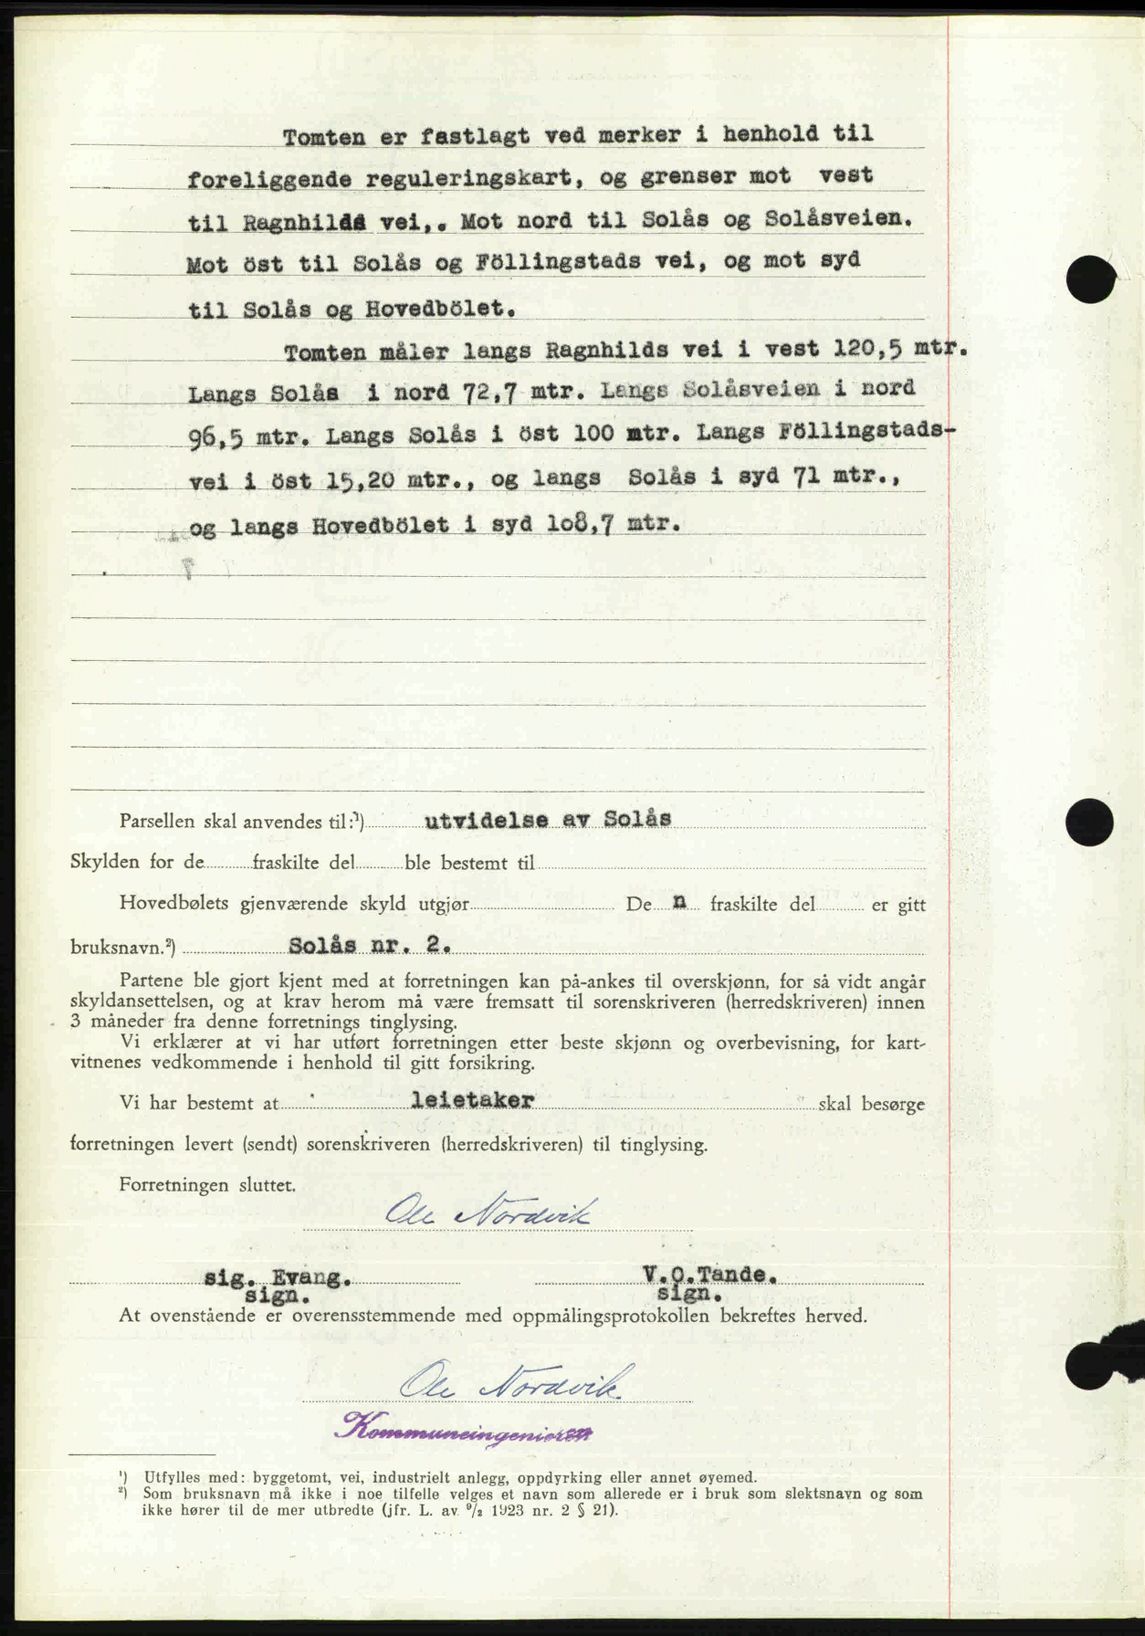 Tomten er fastlagt ved merker i henhold til
foreliggende reguleringskart, og grenser mot vest
til Ragnhilds vei,. Mot nord til Solås og Solåsveien.
Mot öst til Solås og Föllingstads vei, og mot syd
til Solås og Hovedbölet.
Tomten måler langs Ragnhilds vei i vest 120,5 mtr.
Langs Solås i nord 72,7 mtr. Langs Solåsveien i nord
96,5 mtr. Langs Solås i öst 100 mtr. Langs Föllingstads-
vei i öst 15,20 mtr., og langs Solås i syd 71 mtr.,
og langs Hovedbölet i syd 1o8,7 mtr.
Parsellen skal anvendes til:¹) utvidelse av Solås
Skylden for de fraskilte del ble bestemt til
Hovedbølets gjenværende skyld utgjør De n fraskilte del er gitt
bruksnavn.²) Solås nr. 2.
Partene ble gjort kjent med at forretningen kan på-ankes til overskjønn, for så vidt angår
skyldansettelsen, og at krav herom må være fremsatt til sorenskriveren (herredskriveren) innen
3 måneder fra denne forretnings tinglysing.
Vi erklærer at vi har utført forretningen etter beste skjønn og overbevisning, for kart-
vitnenes vedkommende i henhold til gitt forsikring.
Vi har bestemt at leietaker skal besørge
forretningen levert (sendt) sorenskriveren (herredskriveren) til tinglysing.
Forretningen sluttet.
Ole Nordvik
sig. Evang. V.O.Tande.
sign. sign.
At ovenstående er overensstemmende med oppmålingsprotokollen bekreftes herved.
Ole Nordvik
Kommuneingeniøren
¹) Utfylles med: byggetomt, vei, industrielt anlegg, oppdyrking eller annet øyemed.
²) Som bruksnavn må ikke i noe tilfelle velges et navn som allerede er i bruk som slektsnavn og som
ikke hører til de mer utbredte (jfr. L. av ⁹/₂ 1923 nr. 2 § 21).